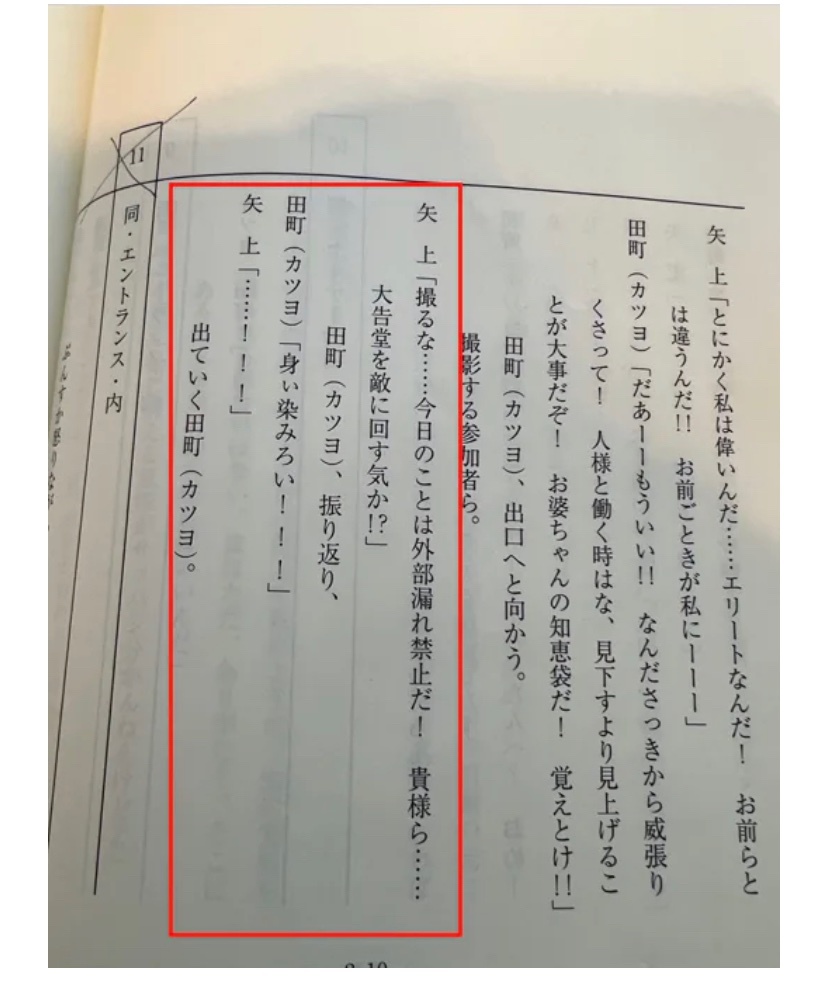 矢　上「とにかく私は偉いんだ……エリートなんだ！　お前らと
は違うんだ!!　お前ごときが私にーーー」
田町（カツヨ）「だあーーもういい!!　なんださっきから威張り
くさって！　人様と働く時はな、見下すより見上げるこ
とが大事だぞ！　お婆ちゃんの知恵袋だ！　覚えとけ!!」
田町（カツヨ）、出口へと向かう。
撮影する参加者ら。
矢　上「撮るな……今日のことは外部漏れ禁止だ！　貴様ら……
大告堂を敵に回す気か!?」
田町（カツヨ）、振り返り、
田町（カツヨ）「身ぃ染みろい！！！」
矢　上「……！！！」
出ていく田町（カツヨ）。
11
同・エントランス・内